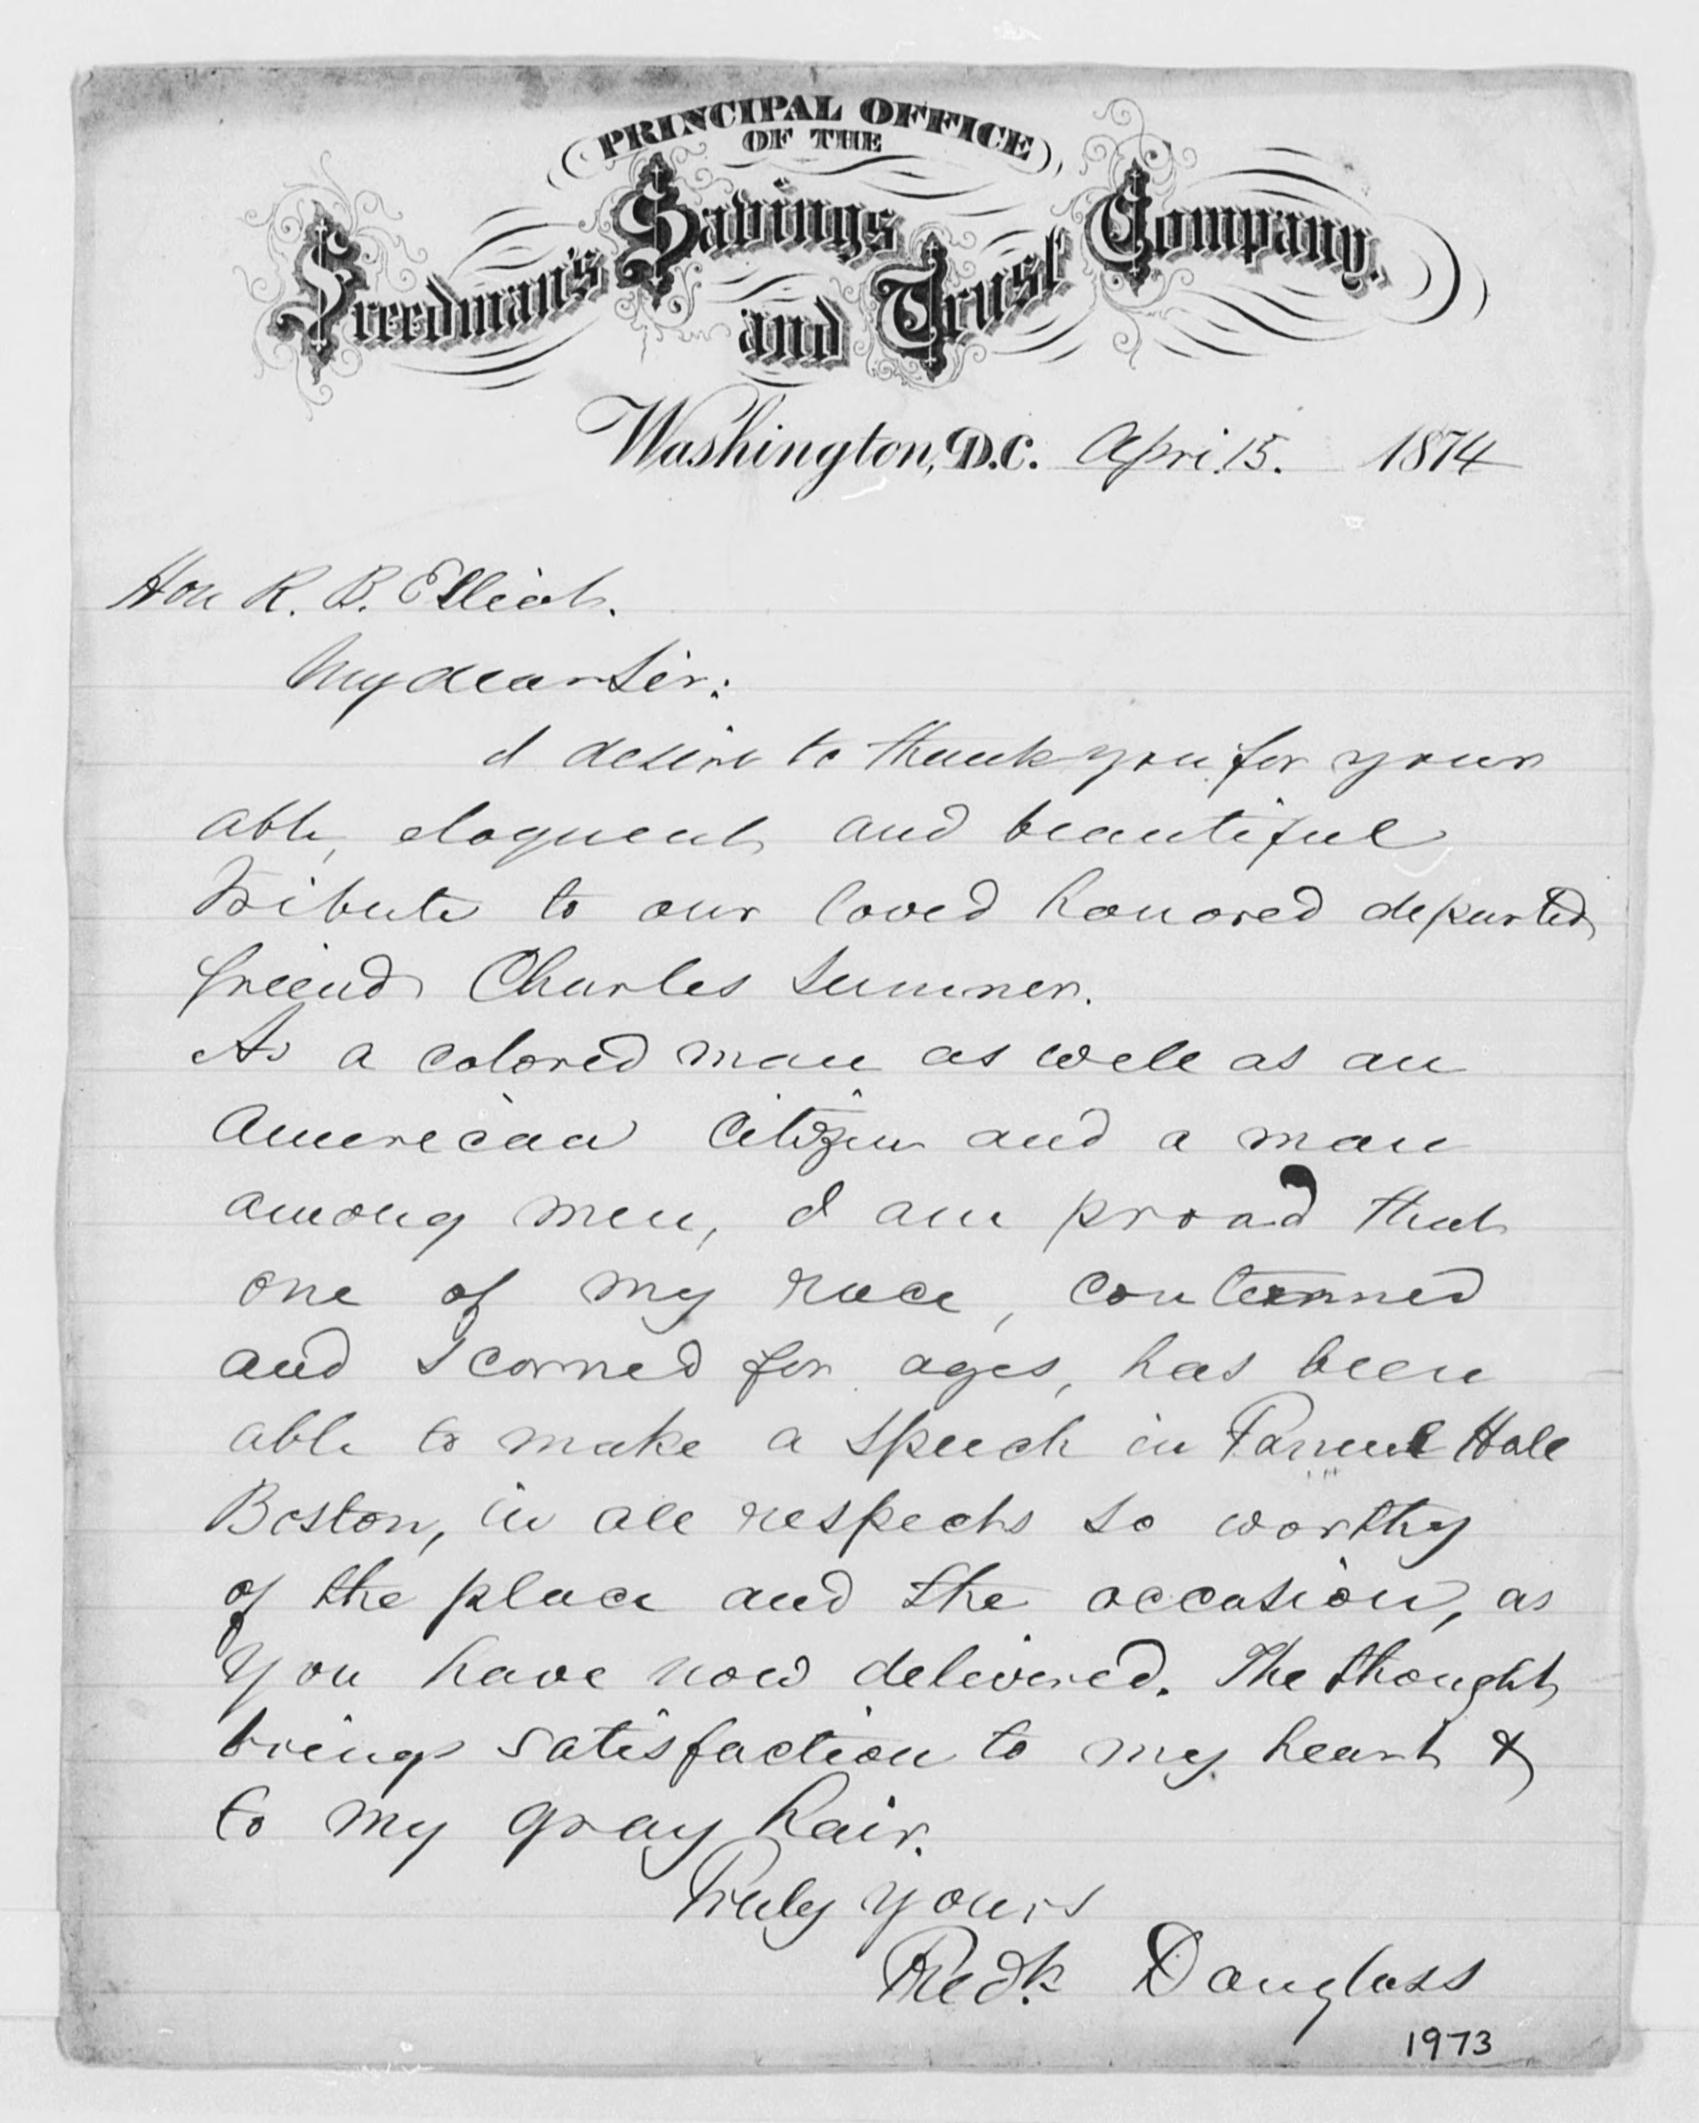 PRINCIPAL OFFICE
OF THE
Freedman's Savings and Trust Company.
Washington, D.C. Apri. 15. 1874
Hon R. B. Elliot.
My dear Sir:
I desire to thank you for your
able, eloquent and beautiful
tribute to our loved honored departed
friend Charles Sumner.
As a colored man as well as an
American Citizen and a man
among men, I am proud that
one of my race, contemned
and scorned for ages, has been
able to make a speech in Hall
Boston, in all respects so worthy
of the place and the occasion, as
you have now delivered. The thought
brings satisfaction to my heart &
to my gray hair.
Truly yours
Fredk. Douglass
1973